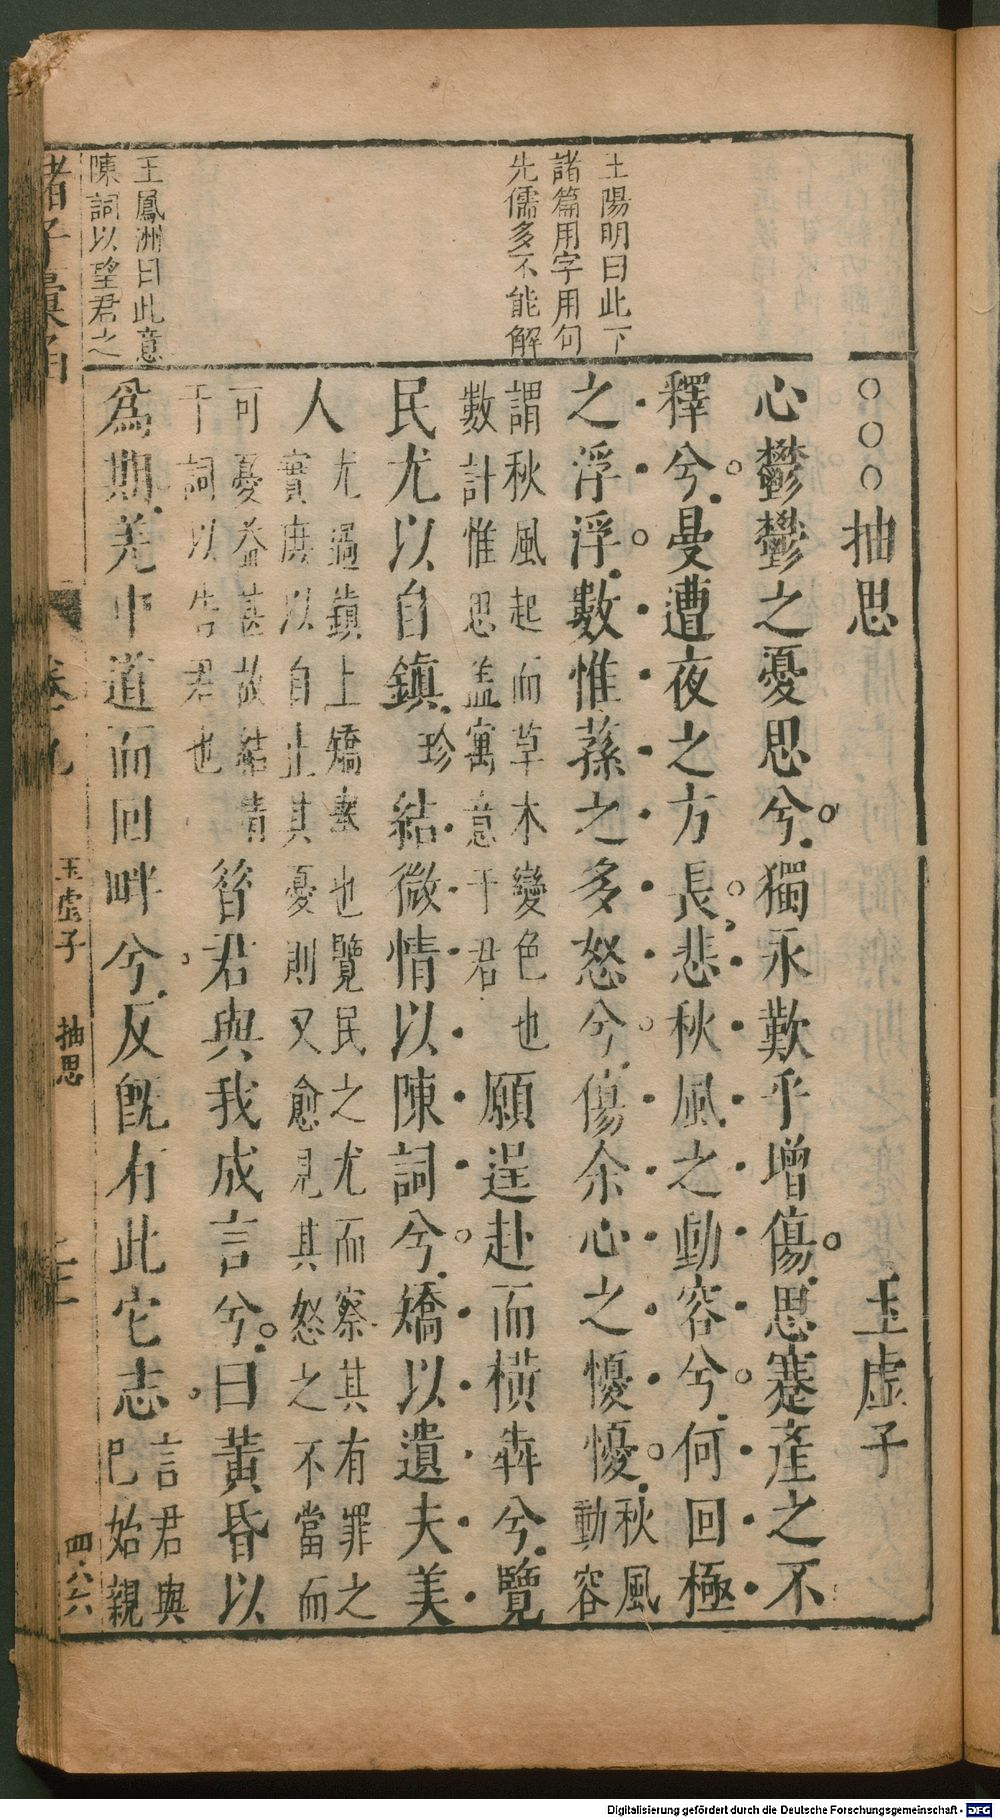 王陽明曰此下
諸篇用字用句
先儒多不能解
王鳳洲曰此意
陳詞以望君之
○○○抽思 玉虛子
心鬱鬱之憂思兮獨永歎乎增傷思蹇產之不
釋兮曼遭夜之方長悲秋風之動容兮何回極
之浮浮數惟蓀之多怒兮傷余心之懮懮秋風動容
謂秋風起而草木變色也
數計惟思盖寓意于君
願逞赴而橫奔兮覽
民尤以自鎮珍結微情以陳詞兮矯以遺夫美
人
尤過鎮上矯
也覽民之尤而察其有罪之
實庶以自止其憂則又愈見其怒之不當而
可憂益甚故結情
于詞以告君也
昝君與我成言兮曰黃昏以
為期羌中道而回畔兮反旣有此它志
言君與
已始親
諸子彙函
卷九
玉虛子 抽思
四·六六
Digitalisierung gefördert durch die Deutsche Forschungsgemeinschaft - DFG